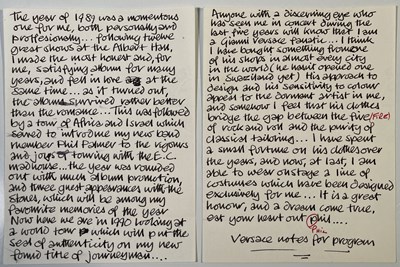 The year of 1989 was a momentous
one for me, both personally and
professionally... following twelve
great shows at the Albert Hall,
I made the most honest and, for
me, satisfying album for many
years, and fell in love at the
same time... as it turned out,
the album survived rather better
than the romance... This was followed
by a tour of Africa and Israel which
served to introduce my new band
member Phil Palmer to the rigours
and joys of touring with the E.C.
madhouse... the year was rounded
out with much album promotion,
and three guest appearances with the
Stones, which will be among my
favourite memories of the year
Now here we are in 1990 looking at
a world tour which will put the
seal of authenticity on my new
found title of journeyman....
Anyone with a discerning eye who
has seen me in concert during the
last five years will know that I am
a Gianni Versace fanatic... I think
I have bought something from one
of his shops in almost every city
in the world (he hasn't opened one
in Swaziland yet) His approach to
design and his sensitivity to colour
appeal to the dormant artist in me,
and somehow I feel that his clothes
bridge the gap between the fire (FIRE)
of rock and roll and the purity of
classical tailoring... I have spent
a small fortune on his clothes over
the years, and now, at last, I am
able to wear onstage a line of
costumes which have been designed
exclusively for me.... It is a great
honour, and a dream come true,
eat your heart out Phil....
Versace notes for program